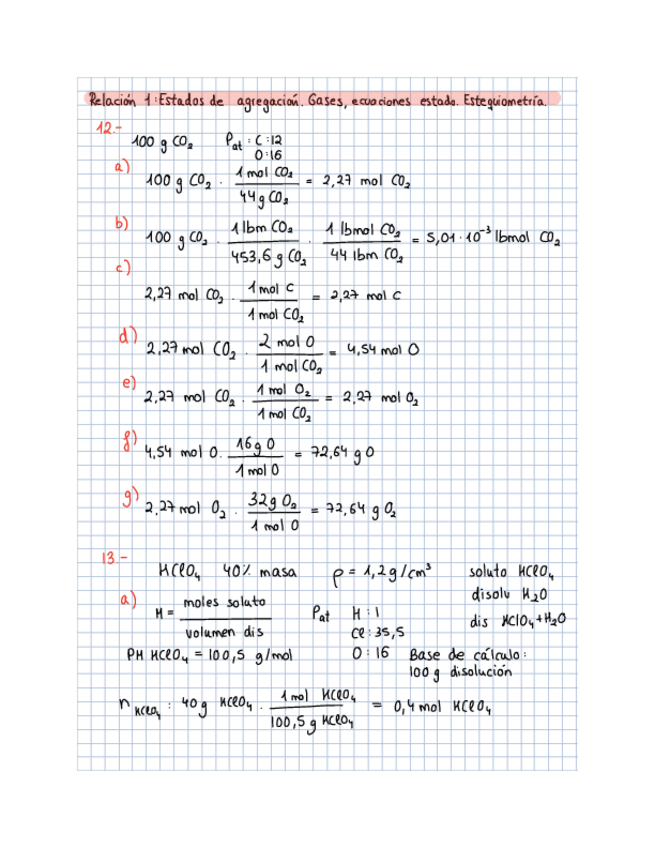 Relación 1: Estados de agregación. Gases, ecuaciones estado. Estequiometría.
12.-
100 g CO₂ Pat : C : 12
O : 16
a) 100 g CO₂ · 1 mol CO₂ / 44 g CO₂ = 2,27 mol CO₂
b) 100 g CO₂ · 1 lbm CO₂ / 453,6 g CO₂ · 1 lbmol CO₂ / 44 lbm CO₂ = 5,01 · 10⁻³ lbmol CO₂
c) 2,27 mol CO₂ · 1 mol C / 1 mol CO₂ = 2,27 mol C
d) 2,27 mol CO₂ · 2 mol O / 1 mol CO₂ = 4,54 mol O
e) 2,27 mol CO₂ · 1 mol O₂ / 1 mol CO₂ = 2,27 mol O₂
f) 4,54 mol O · 16 g O / 1 mol O = 72,64 g O
g) 2,27 mol O₂ · 32 g O₂ / 1 mol O = 72,64 g O₂
13.-
HClO₄ 40% masa ρ = 1,2 g/cm³ soluto HClO₄
disolv H₂O
dis HClO₄ + H₂O
a) M = moles soluto / volumen dis Pat H : 1
Cl : 35,5
O : 16
PM HClO₄ = 100,5 g/mol Base de cálculo :
100 g disolución
n HClO₄ : 40 g HClO₄ · 1 mol HClO₄ / 100,5 g HClO₄ = 0,4 mol HClO₄